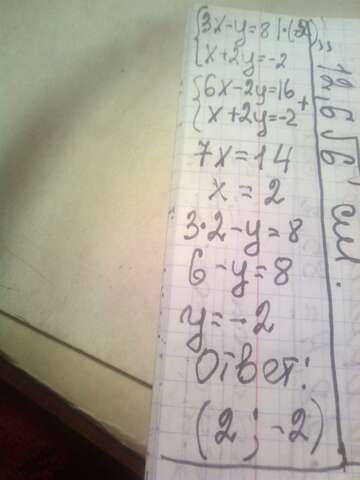 3x-y=8 | ·(2)
x+2y=-2
6x-2y=16
+
x+2y=-2
7x=14
x=2
3·2-y=8
6-y=8
y=-2
Ответ:
(2; -2)